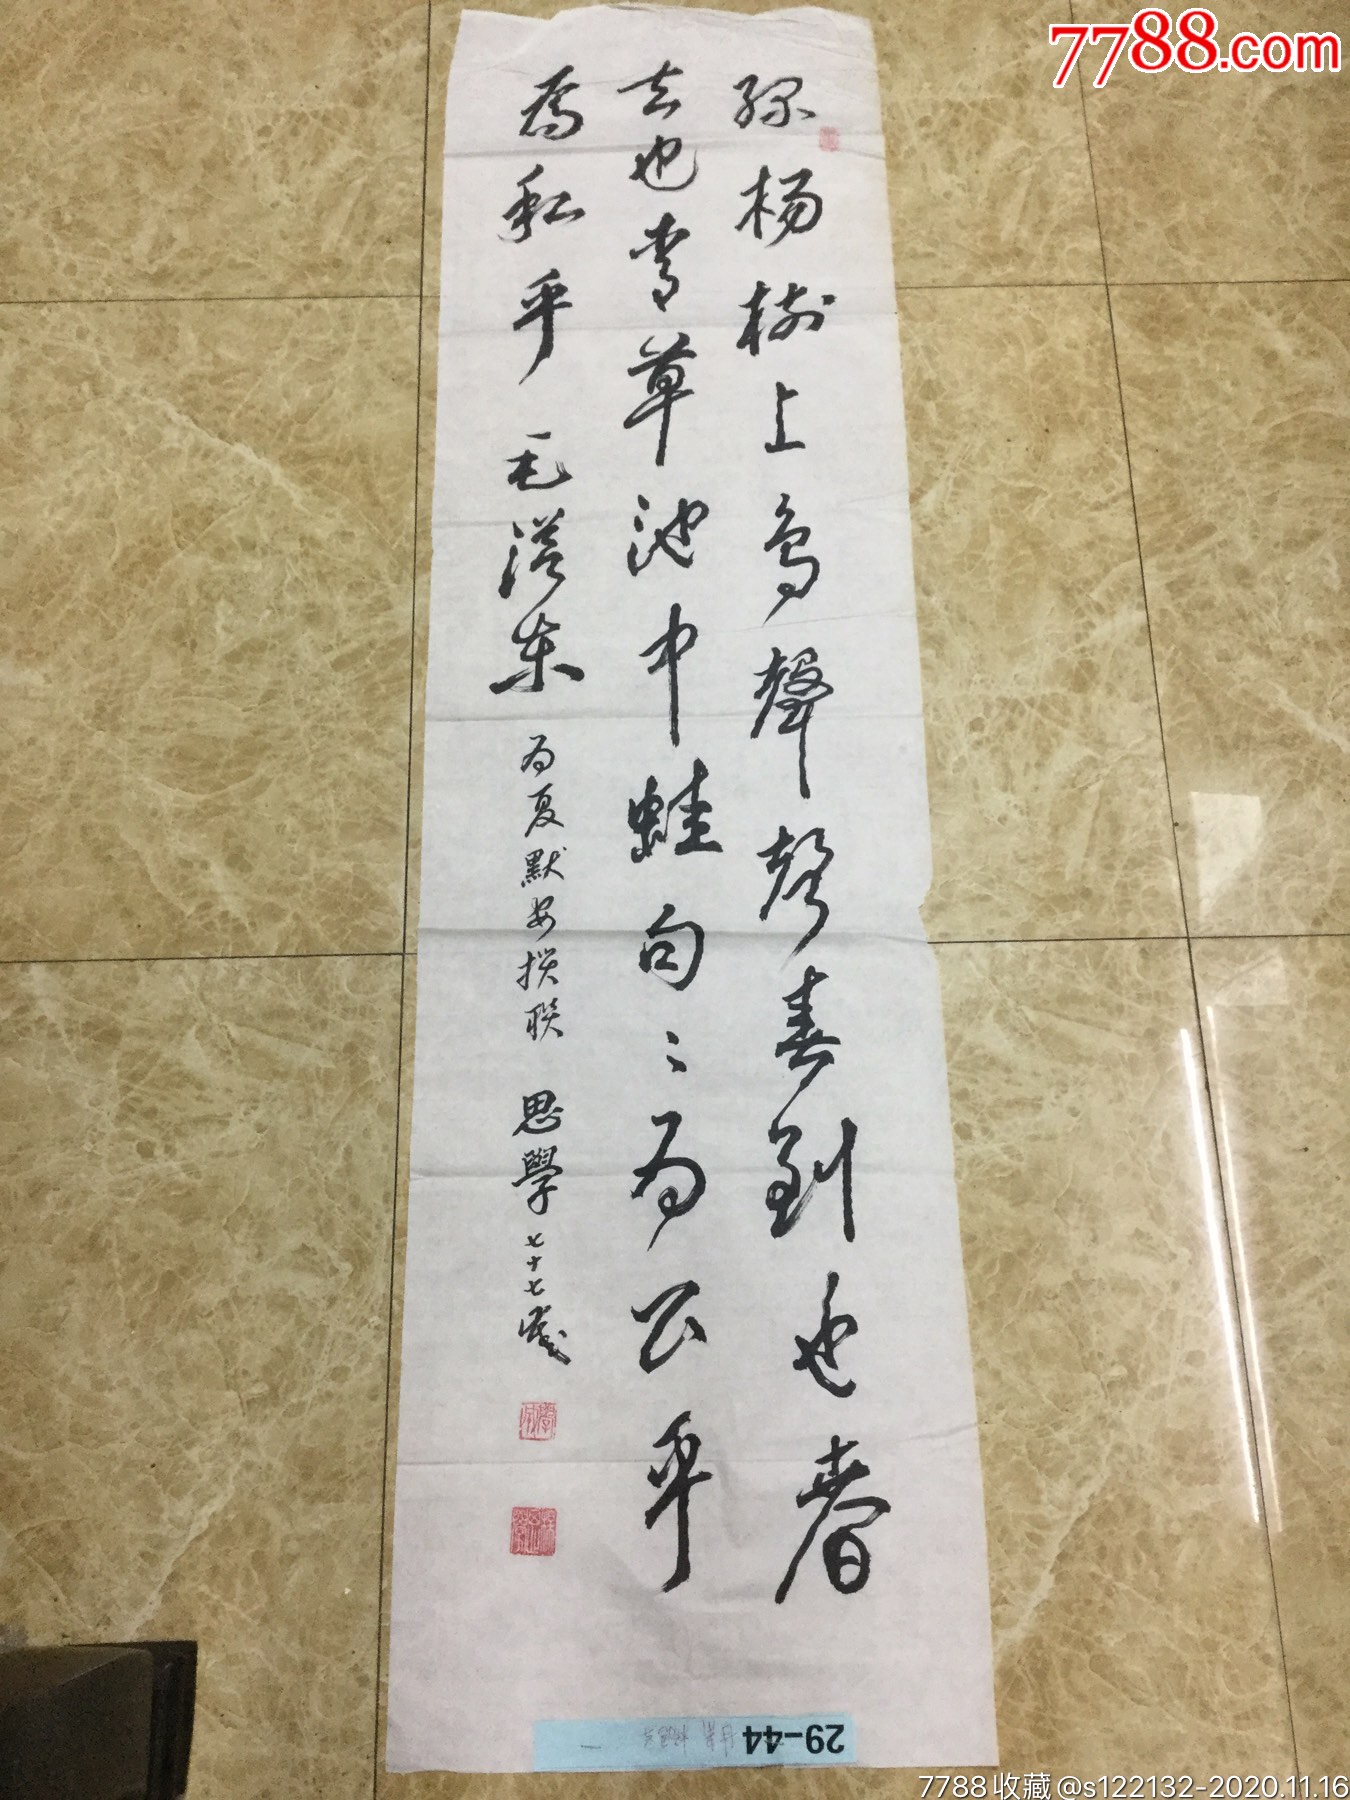 7788.com
绿杨树上鸟聲声春到也春
去也青草池中蛙句々为公乎
為私乎 毛泽东 为夏默安撰联 思學 七十七歲
29-44
7788收藏@s122132-2020.11.16